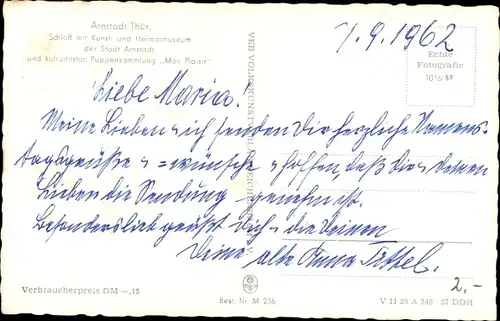 Arnstadt Thür.
Schloß mit Kunst- und Heimatmuseum
der Stadt Arnstadt
und kulturhistor. Puppensammlung „Mon Plaisir"
7.9.1962
Echte
Fotografie
1016 SF
Liebe Maria.
Meine Lieben u. ich senden Dir herzliche Namens-
tagsgrüße u. =wünsche u. hoffen daß Dir u. Deinen
Lieben die Sendung genehm ist.
Besonders lieb grüßt Dich u. die Deinen
Deine alte Anna
2.-
Verbraucherpreis DM —,15
Best. Nr. M 236
V 11 28 A 348 57 DDR